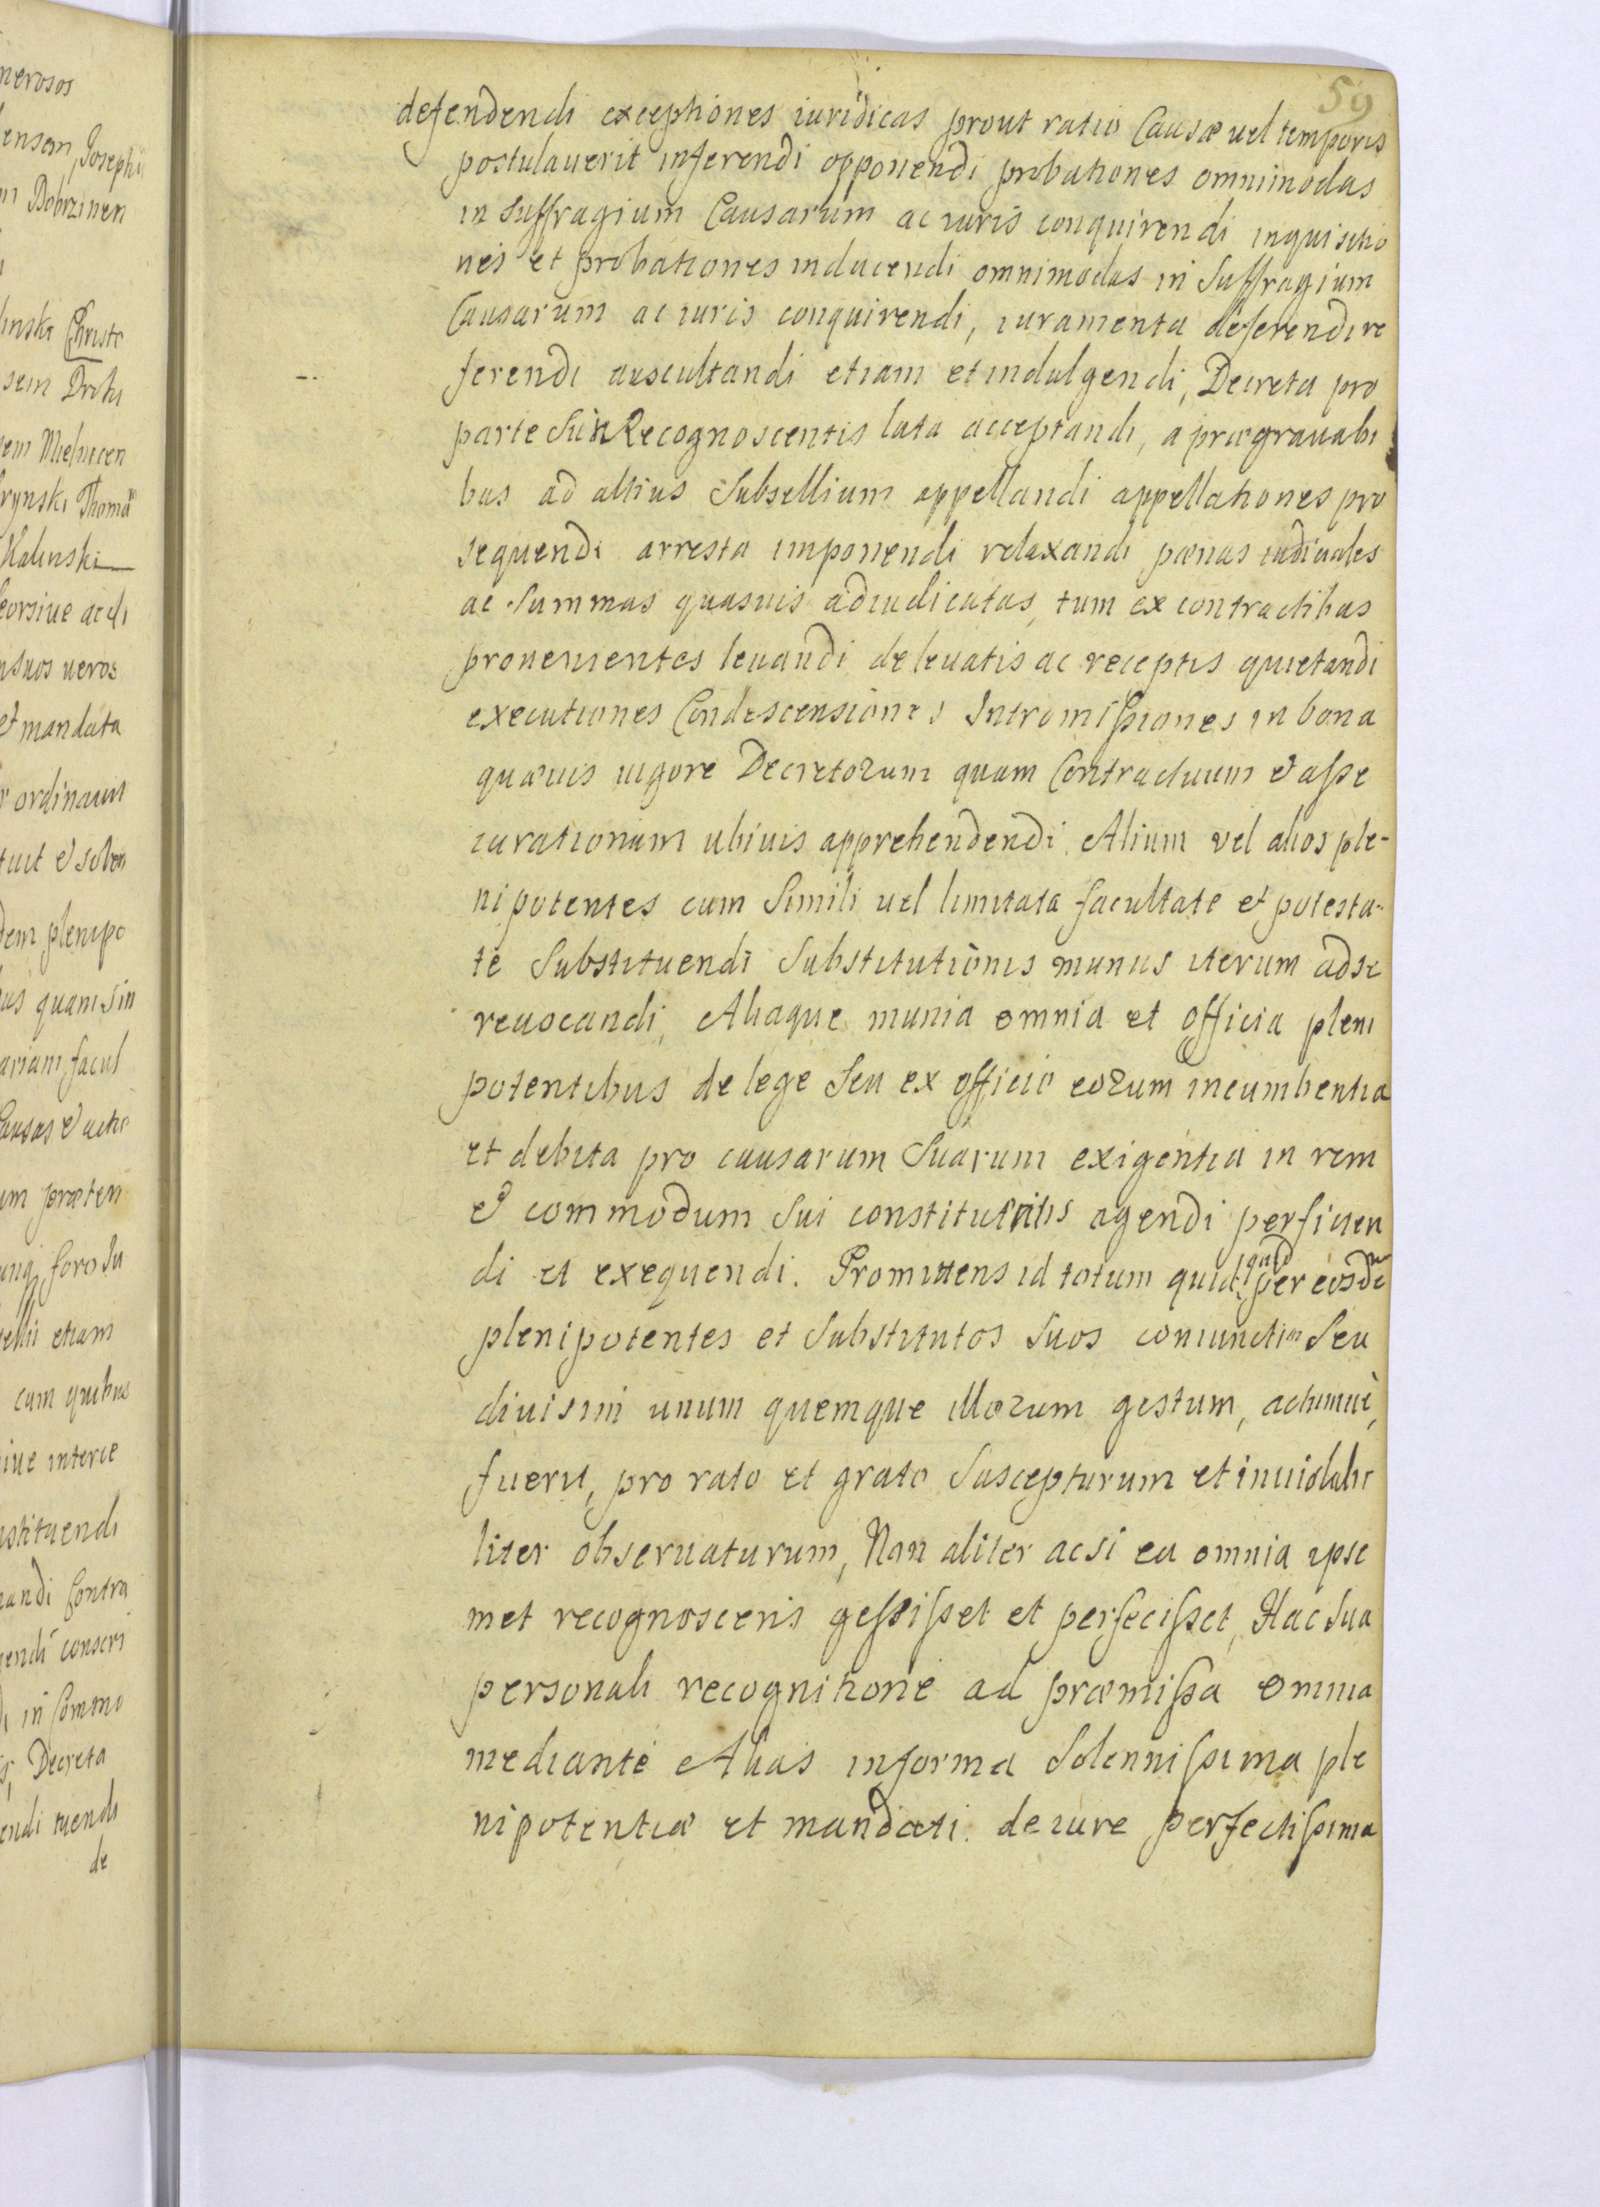 59
defendendi exceptiones iuridicas prout ratio Causæ uel temporis
postulauerit inferendi opponendi probationes omnimodas
in suffragium Causarum ac iuris conquirendi inquisitio
nes et probationes inducendi omnimodas in suffragium
Causarum ac iuris conquirendi, iuramenta deferendi re
ferendi auscultandi etiam et indulgendi, Decreta pro
parte Sui Recognoscentis lata acceptandi, a prægrauabi
bus ad altius Subsellium appellandi appellationes pro
sequendi arresta imponendi relaxandi pænas iudiciales
ac Summas quasuis adiudicatas, tum ex contractibus
prouenientes leuandi de leuatis ac receptis quietandi
executiones Condescensiones Intromißiones in bona
quæuis uigore Decretorum quam Contractuum & aße
curationum ubiuis apprehendendi Alium vel alios ple-
nipotentes cum Simili uel limitata facultate et potesta-
te Substituendi Substitutionis munus iterum ad se
reuocandi, Aliaque munia omnia et officia pleni
potentibus de lege Seu ex officio eorum incumbentia
et debita pro causarum Suarum exigentia in rem
& commodum Sui constituentis agendi perficien
di et exequendi. Promittens id totum quidquid per eosdẽ
plenipotentes et Substitutos Suos coniunctim Seu
diuisim unum quemque illorum gestum, actumue,
fuerit, pro rato et grato Suscepturum et inuiolabi
liter obseruaturum, Non aliter acsi ea omnia ipse
met recognoscens geßißet et perfecißet, Hac Sua
personali recognitione ad præmißa omnia
mediante Alias in forma Solennißima ple
nipotentiæ et mandati de iure perfectißima
nerosos
ensem, Josephi
m Dobrzinen
linski Christo
sem Proku
em Mielnicen
rynski Thomæ
Kalinski
eorsiue ac di
suos ueros
& mandata
ordinauit
tuit & solen
dem plenipo
us quam Sin
ariam facul
Causas & actio
um præten
foro Su
etiam
cum quibus
iue interce
stituendi
andi Contra
endi conscri
in Commo
Decreta
endi tuendi
de